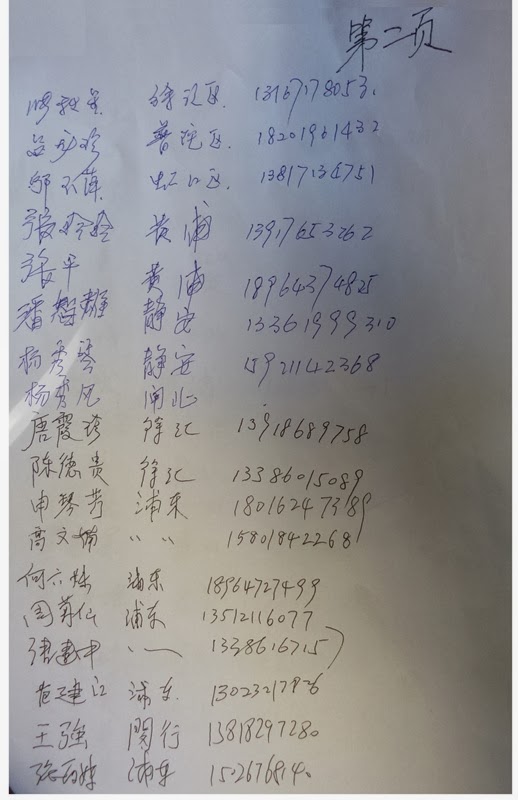 第二页
徐汇区 13167178053
普陀区 18201961432
虹口区 13817134751
张玲玲 黄浦 13917653262
张平 黄浦 18964374825
潘 静安 13361999310
杨秀琴 静安 15921142368
杨秀凤 闸北
唐霞珍 徐汇 13918689758
陈德贵 徐汇 13386015089
申琴芳 浦东 18016247389
高文娟 〃 〃 15801842268
何六妹 浦东 18964727499
周菊仙 浦东 13512116077
建中 1338616715
范建江 浦东
王强 闵行 13818297280
张 浦东